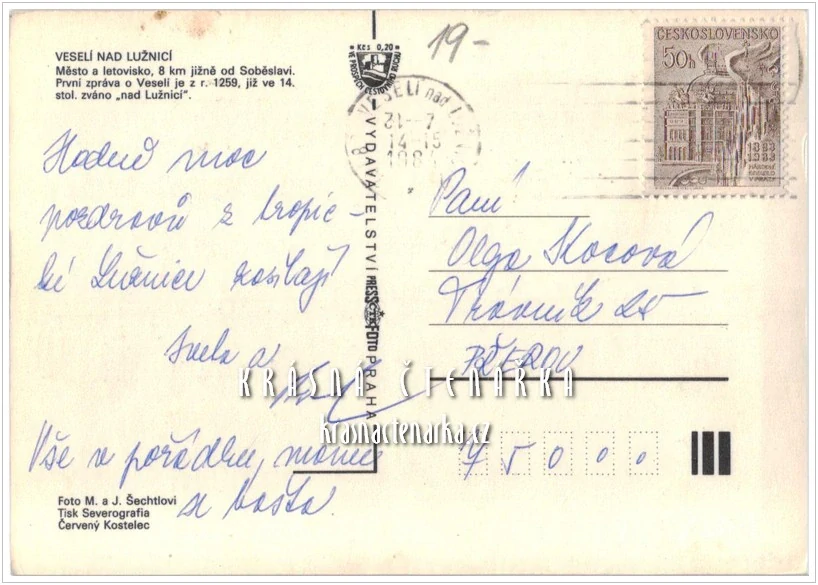 VESELÍ NAD LUŽNICÍ
Město a letovisko, 8 km jižně od Soběslavi.
První zpráva o Veselí je z r. 1259, již ve 14.
stol. zváno „nad Lužnicí".
Hodně moc
pozdravů z tropic-
ké Lužnice posílají
a
Vše v pořádku, máme
se
Foto M. a J. Šechtlovi
Tisk Severografia
Červený Kostelec
Kčs 0,20
VE PROSPĚCH CESTOVNÍHO RUCHU
VYDAVATELSTVÍ PRESSFOTO PRAHA
19-
VESELÍ nad
31.-7
14-15
ČESKOSLOVENSKO
50h
1883
1983
NÁRODNÍ
DIVADLO
V PRAZE
Paní
Olga Kocová
Trávník 25
PŘEROV
75000
KRÁSNÁ ČTENÁRKA
krasnactenarka.cz